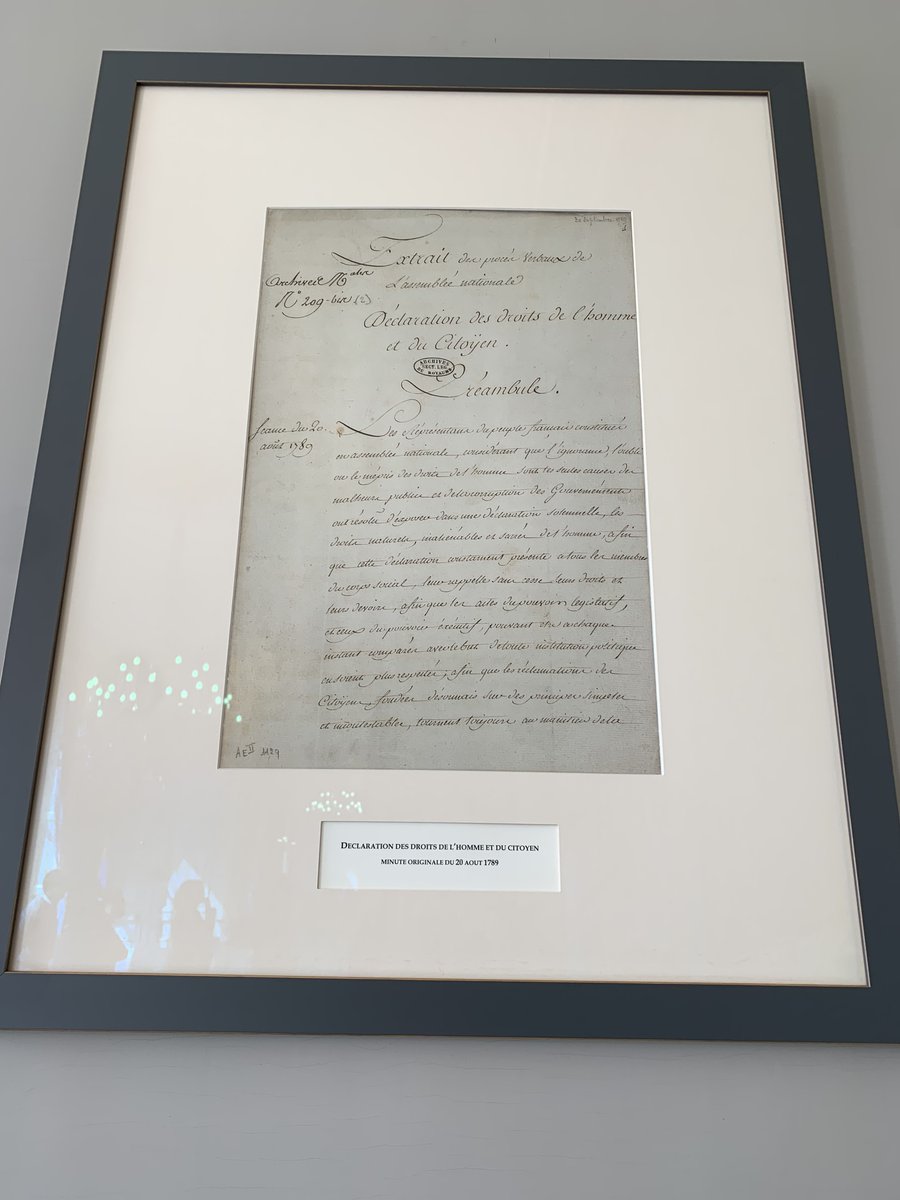 20 Septembre 1789
1
Extrait des procès Verbaux de
L'assemblée nationale
Archives
N° 209-bis (2)
Déclaration des droits de l'homme
et du Citoÿen.
ARCHIVES
SECT. LEG.
DU ROYAUME
Préambule.
Seance du 20.
août 1789
Les Réprésentans du peuple francais constitués
en assemblée nationale, considérant que l'ignorance, l'oubli
ou le mépris des droits de l'homme sont les seules causes des
malheurs publics et de la corruption des Gouvernements
ont résolu d'éxposer dans une déclaration solemnelle, les
droits naturels, inaliénables et sacrés de l'homme, afin
que cette déclaration constament présente a tous les membres
du corps social, leur rappelle sans cesse leurs droits et
leurs devoirs, afin que les actes du pouvoir législatif,
et ceux du pouvoir éxécutif, pouvant etre a chaque
instant comparés avec le but de toute institution politique
en soient plus respectés; afin que les réclamations des
Citoyens, fondées désormais sur des principes simples
et incontestables, tournent toujours au maintien de la
AE II 1129
DECLARATION DES DROITS DE L'HOMME ET DU CITOYEN
MINUTE ORIGINALE DU 20 AOUT 1789